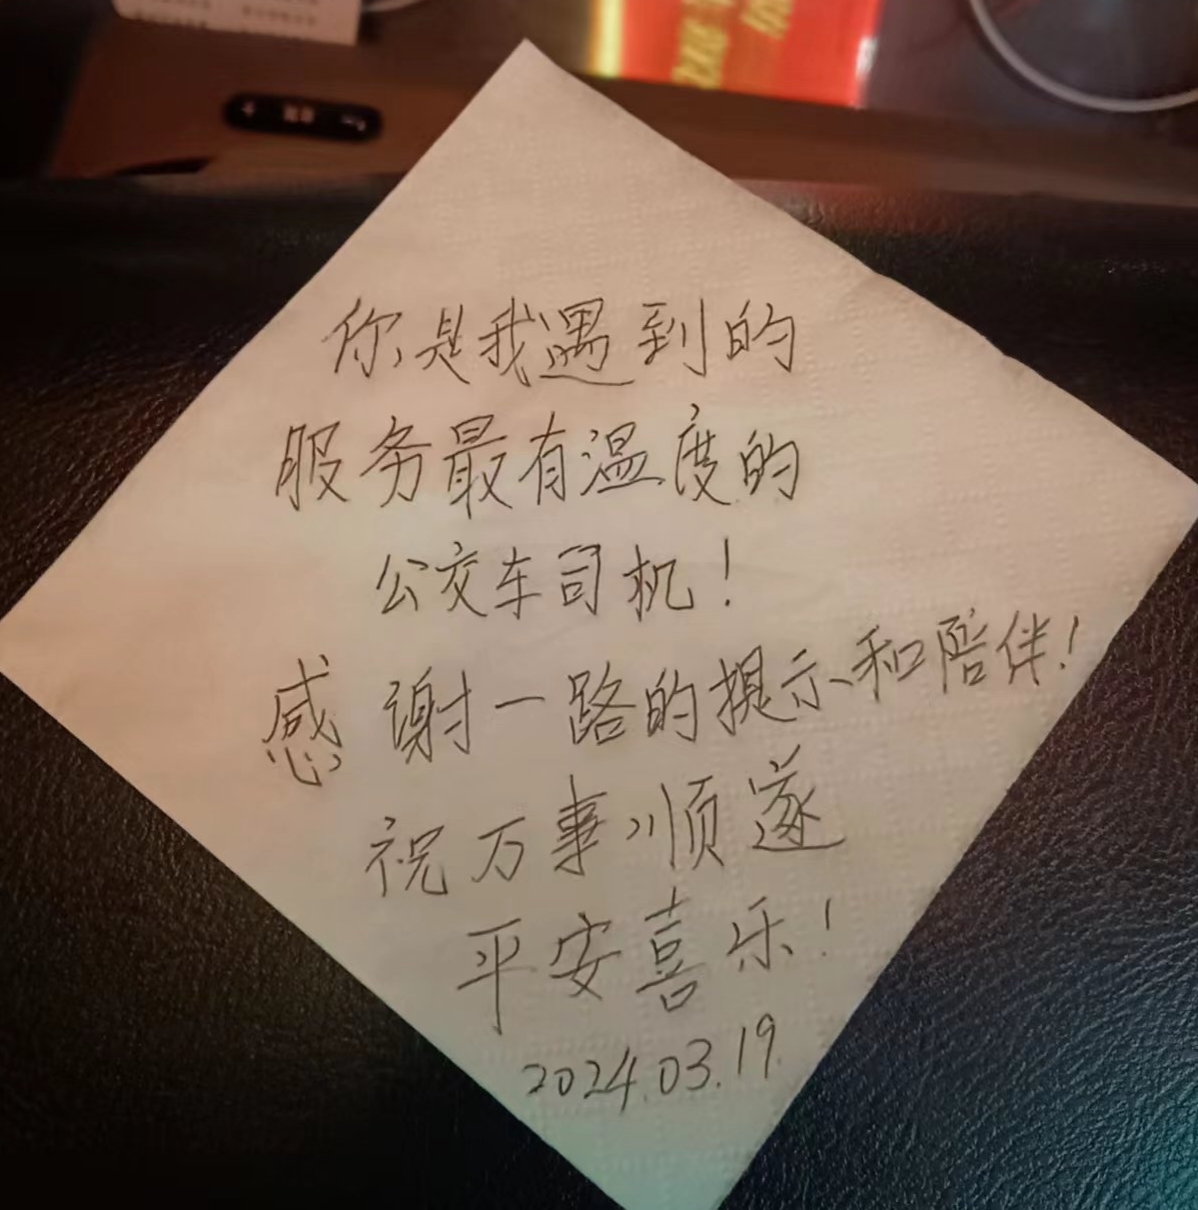 你是我遇到的
服务最有温度的
公交车司机！
感谢一路的提示和陪伴！
祝万事顺遂
平安喜乐！
2024.03.19